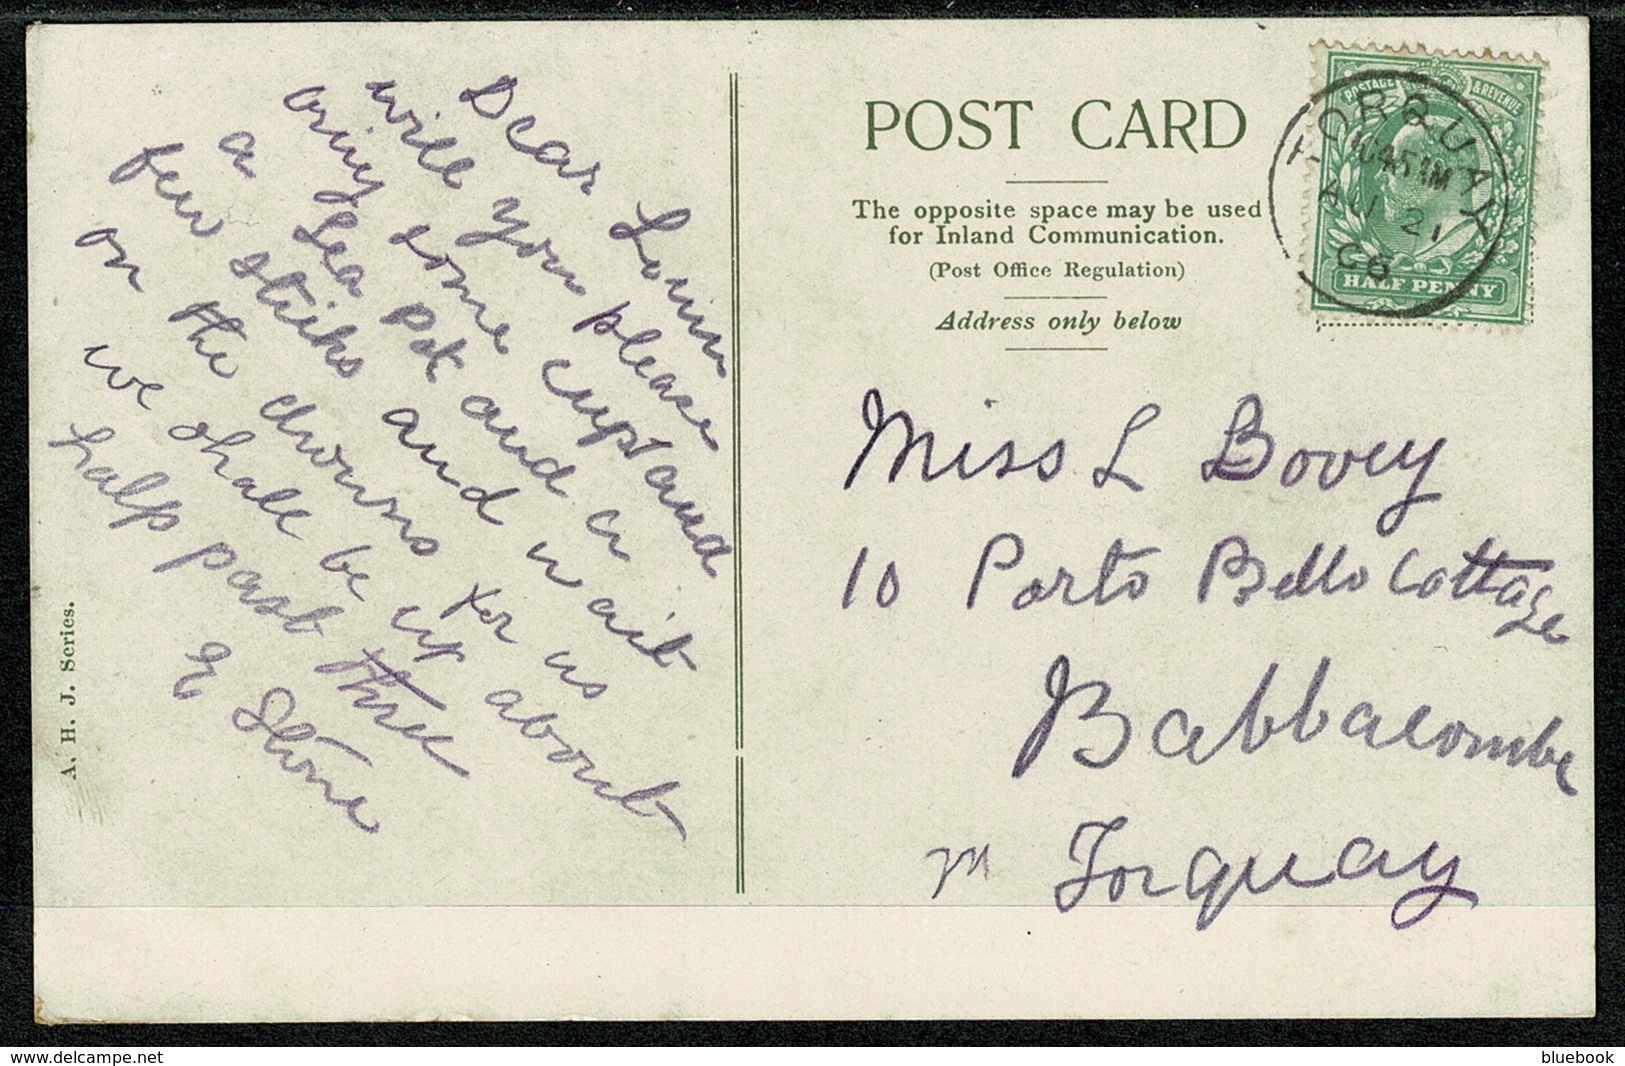 Dear Louin
will you please
bring some cups and
a Tea pot and a
few sticks and wait
on the downs for us
we shall be up about
half past three
E Stone
A. H. J. Series.
POST CARD
The opposite space may be used
for Inland Communication.
(Post Office Regulation)
Address only below
POSTAGE & REVENUE
HALF PENNY
TORQUAY
1045 AM
AU 21
06
Miss L Bovey
10 Porto Bello Cottage
Babbacombe
Torquay
www.delcampe.net
bluebook